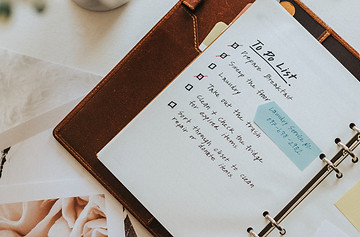 To Do List
Prepare Breakfast
Sweep the floor
Laundry
Take out the trash
Clean & check the fridge
for expired items
Sort through closet to clean
repair or donate items